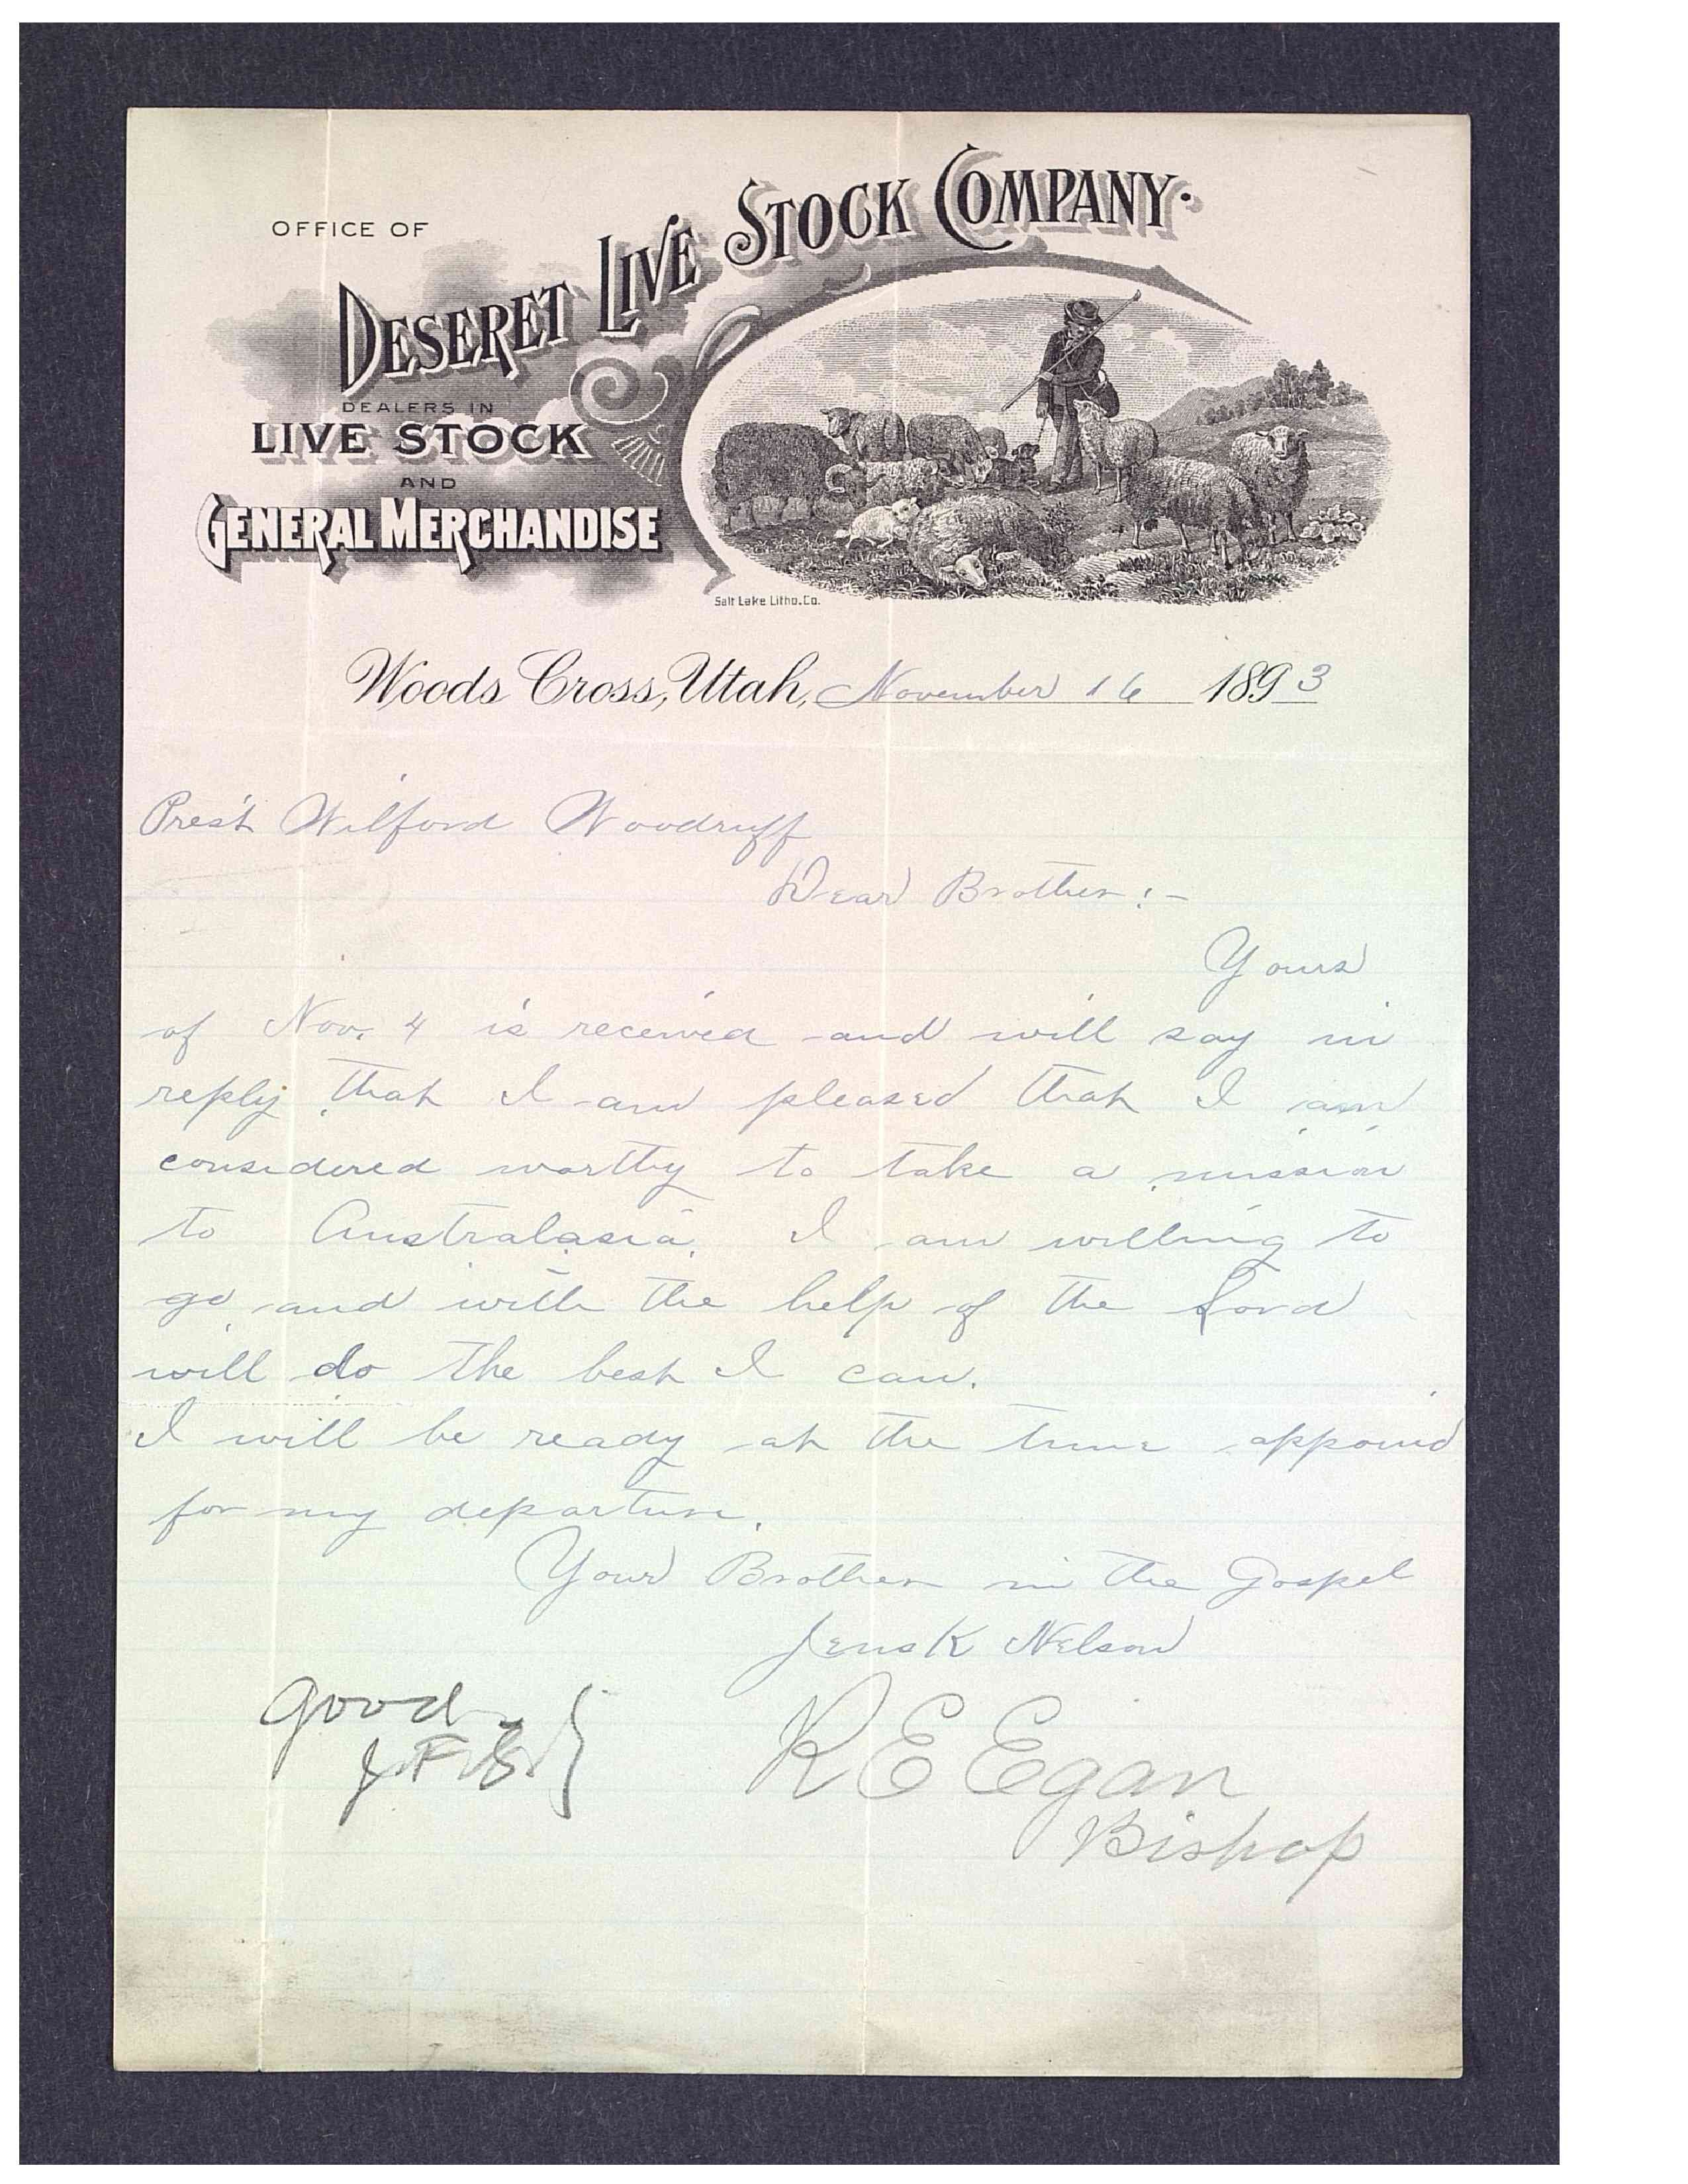 OFFICE OF
DESERET LIVE STOCK COMPANY.
DEALERS IN
LIVE STOCK
AND
GENERAL MERCHANDISE
Salt Lake Litho. Co.
Woods Cross, Utah, November 16 1893
Pres't Wilford Woodruff
Dear Brother:-
Yours
of Nov. 4 is received and will say in
reply that I am pleased that I am
considered worthy to take a mission
to Australasia. I am willing to
go and with the help of the Lord
will do the best I can.
I will be ready at the time appoind
for my departure.
Your Brother in the Gospel
Jens K Nelson
good
J. F. S.
R E Egan
Bishop